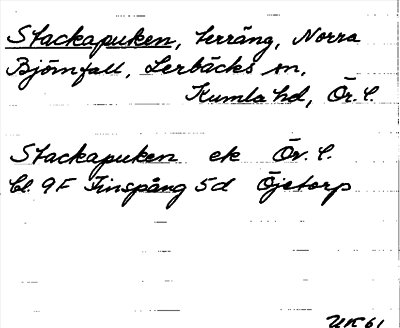 Stackapuken, terräng, Norra
Björnfall, Lerbäcks sn,
Kumla hd, Ör. l.
Stackapuken ek Ör. l.
bl. 9F Finspång 5d Öjetorp
UK 61